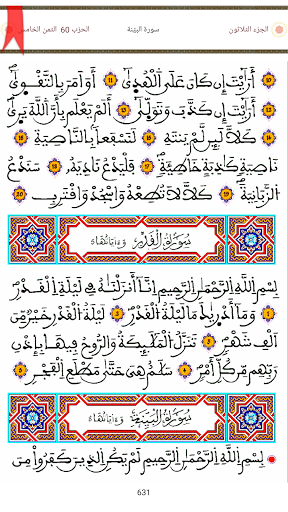 الجزء الثلاثون
سورة البيّنة
الحزب 60 الثمن الخامس
10 أَرَٰيْتَ إِن كَانَ عَلَى اَ۬لْهُد۪ىٰٓ 11 أَوَ اَمَرَ بِالتَّقْو۪ىٰٓ
12 أَرَٰيْتَ إِن كَذَّبَ وَتَوَلّ۪ىٰٓ 13 أَلَمْ يَعْلَم بِأَنَّ اَ۬للَّهَ يَر۪ىٰ
14 كَلَّا لَئِن لَّمْ يَنتَهِ 15 لَنَسْفَعاَۢ بِالنَّاصِيَةِ
نَاصِيَةٖ كَٰذِبَةٍ خَاطِئَةٖ 17 فَلْيَدْعُ نَادِيَهُۥ 18 سَنَدْعُ
اُ۬لزَّبَانِيَةَ 19 كَلَّا لَا تُطِعْهُ وَاسْجُدْ وَاقْتَرِب 20
سُورَةُ اُ۬لْقَدْرِ وَءَايَاتُهَا
بِسْمِ اِ۬للَّهِ اِ۬لرَّحْمَٰنِ اِ۬لرَّحِيمِ إِنَّآ أَنزَلْنَٰهُ فِے لَيْلَةِ اِ۬لْقَدْرِ
1 وَمَآ أَدْر۪ىٰكَ مَا لَيْلَةُ اُ۬لْقَدْرِ 2 لَيْلَةُ اُ۬لْقَدْرِ خَيْرٞ مِّنَ
اَلْفِ شَهْرٖ 3 تَنَزَّلُ اُ۬لْمَلَٰٓئِكَةُ وَالرُّوحُ فِيهَا بِإِذْنِ
رَبِّهِم مِّن كُلِّ أَمْرٖ 4 سَلَٰمٌ هِيَ حَتَّىٰ مَطْلَعِ اِ۬لْفَجْرِ 5
سُورَةُ اُ۬لْبَيِّنَةِ وَءَايَاتُهَا
بِسْمِ اِ۬للَّهِ اِ۬لرَّحْمَٰنِ اِ۬لرَّحِيمِ لَمْ يَكُنِ اِ۬لذِينَ كَفَرُواْ مِنَ
631